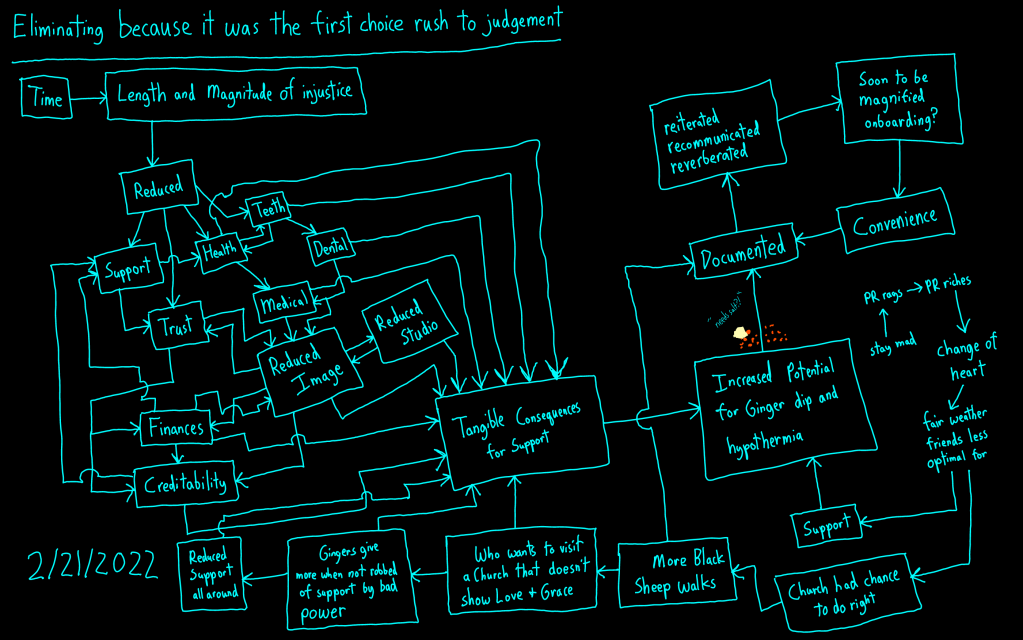 Eliminating because it was the first choice rush to judgement
Time
Length and Magnitude of injustice
Reduced
Teeth
Health
Dental
Support
Medical
Trust
Reduced
Studio
Reduced
Image
Finances
Creditability
Tangible Consequences
for Support
reiterated
recommunicated
reverberated
Soon to be
magnified
onboarding?
Convenience
Documented
"needs salt?!"
PR rags
PR riches
stay mad
change of
heart
fair weather
friends less
optimal for
Increased Potential
for Ginger dip and
hypothermia
Support
Church had chance
to do right
More Black
Sheep walks
Who wants to visit
a Church that doesn't
show Love & Grace
Gingers give
more when not robbed
of support by bad
power
Reduced
Support
all around
2/21/2022